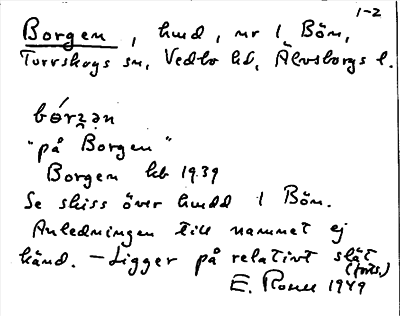 1-2
Borgen, hmd, nr 1 Bön,
Torrskogs sn, Vedbo hd, Älvsborgs l.
bó̤rʒ̣ən
"på Borgen"
Borgen kb 1939
Se skiss över hmdd 1 Bön.
Anledningen till namnet ej
känd. – Ligger på relativt slät
(forts.)
E. Rosell 1949